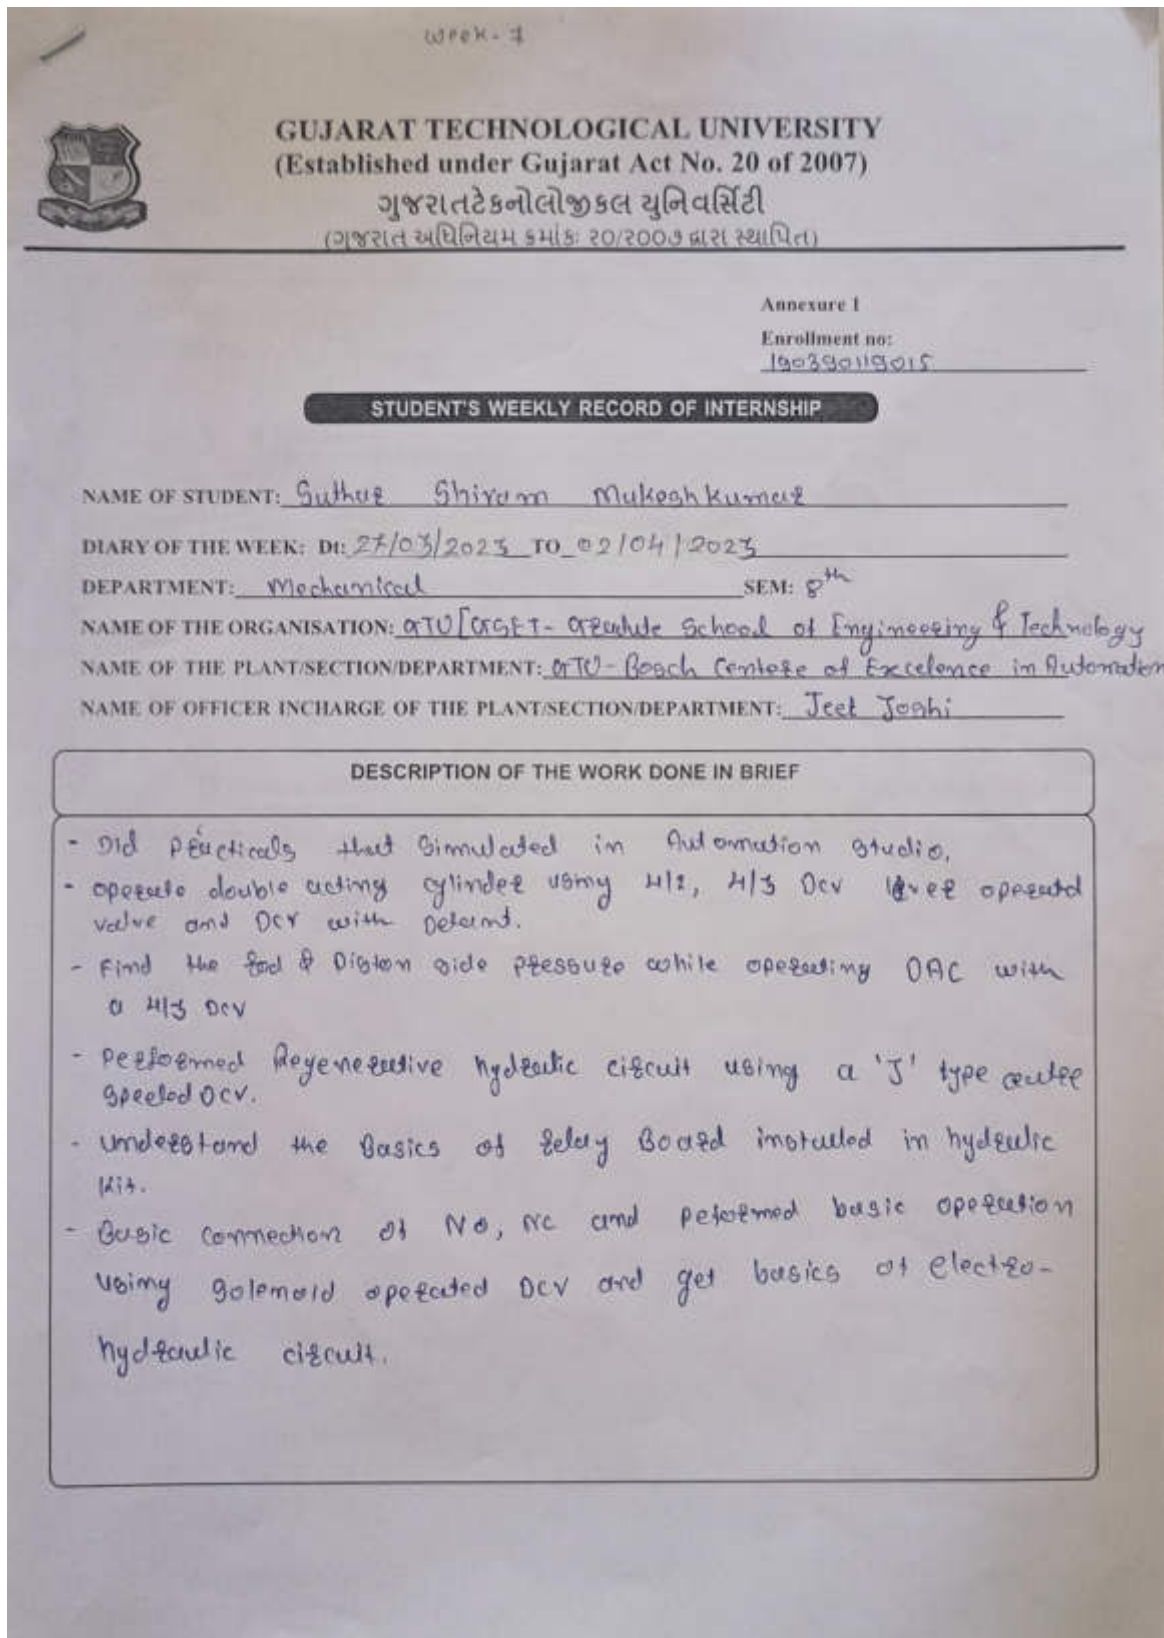 Week - 7
GUJARAT TECHNOLOGICAL UNIVERSITY
(Established under Gujarat Act No. 20 of 2007)
ગુજરાતટેકનોલોજીકલ યુનિવર્સિટી
(ગુજરાત અધિનિયમ ક્રમાંકઃ ૨૦/૨૦૦૭ દ્વારા સ્થાપિત)
Annexure 1
Enrollment no:
190390119015
STUDENT'S WEEKLY RECORD OF INTERNSHIP
NAME OF STUDENT: Suthar Shivam Mukeshkumar
DIARY OF THE WEEK: Dt: 27/03/2023 TO 02/04/2023
DEPARTMENT: Mechanical SEM: 8th
NAME OF THE ORGANISATION: GTU [GSET - Graduate School of Engineering & Technology
NAME OF THE PLANT/SECTION/DEPARTMENT: GTU - Bosch Centere of Excelence in Automation
NAME OF OFFICER INCHARGE OF THE PLANT/SECTION/DEPARTMENT: Jeet Joshi
DESCRIPTION OF THE WORK DONE IN BRIEF
- Did practicals that simulated in Automation studio.
- operate double acting cylinder using 4/2, 4/3 DCV lever operated
valve and DCV with Detent.
- Find the rod & Piston side pressure while operating DAC with
a 4/3 DCV
- Performed Regenerative hydraulic circuit using a 'J' type
DCV.
- understand the Basics of relay Board installed in hydraulic
kit.
- Basic connection of NO, NC and performed basic operation
using solenoid operated DCV and get basics of electro-
hydraulic circuit.